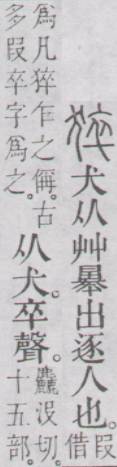 猝犬从艸曓出逐人也。叚
借
爲凡猝乍之偁。古
多叚卒字爲之。
从犬。卒聲。
麤沒切。
十五部。